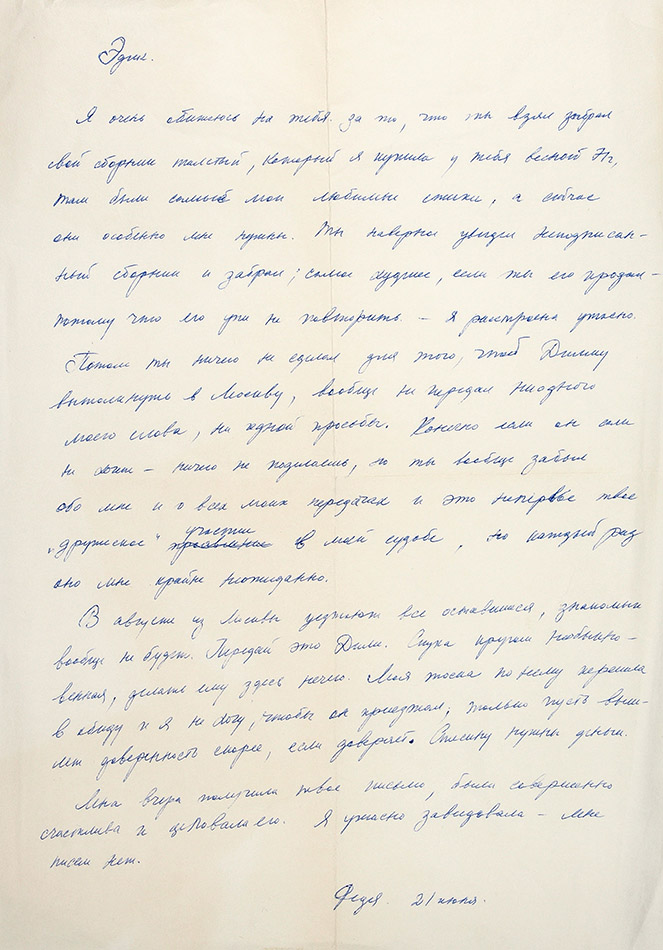 Эдик.
Я очень обижаюсь на тебя за то, что ты взял забрал
свой сборник толстый, который я купила у тебя весной 71г,
там были самые мои любимые стихи, а сейчас
они особенно мне нужны. Ты наверное увидел неподписан-
ный сборник и забрал; самое худшее, если ты его продал –
потому что его уже не повторить. – Я расстроена ужасно.
Потом ты ничего не сделал для того, чтоб Димку
вытолкнуть в Москву, вообще не передал ниодного
моего слова, ни одной просьбы. Конечно если он сам
не хочет – ничего не поделаешь, но ты вообще забыл
обо мне и о всех моих передачах и это невпервые твое
"дружеское" участие в моей судьбе, но каждый раз
оно мне крайне неожиданно.
В августе из Москвы уезжают все оставшиеся, знакомых
вообще не будет. Передай это Диме. Скука кругом необыкно-
венная, делать ему здесь нечего. Моя тоска по нему перешла
в обиду и я не хочу, чтобы он приезжал; только пусть выш-
лет доверенность скорее, если доверяет. Спасину нужны деньги.
Лена вчера получила твое письмо, была совершенно
счастлива и целовала его. Я ужасно завидовала – мне
писем нет.
Федя. 21 июля.